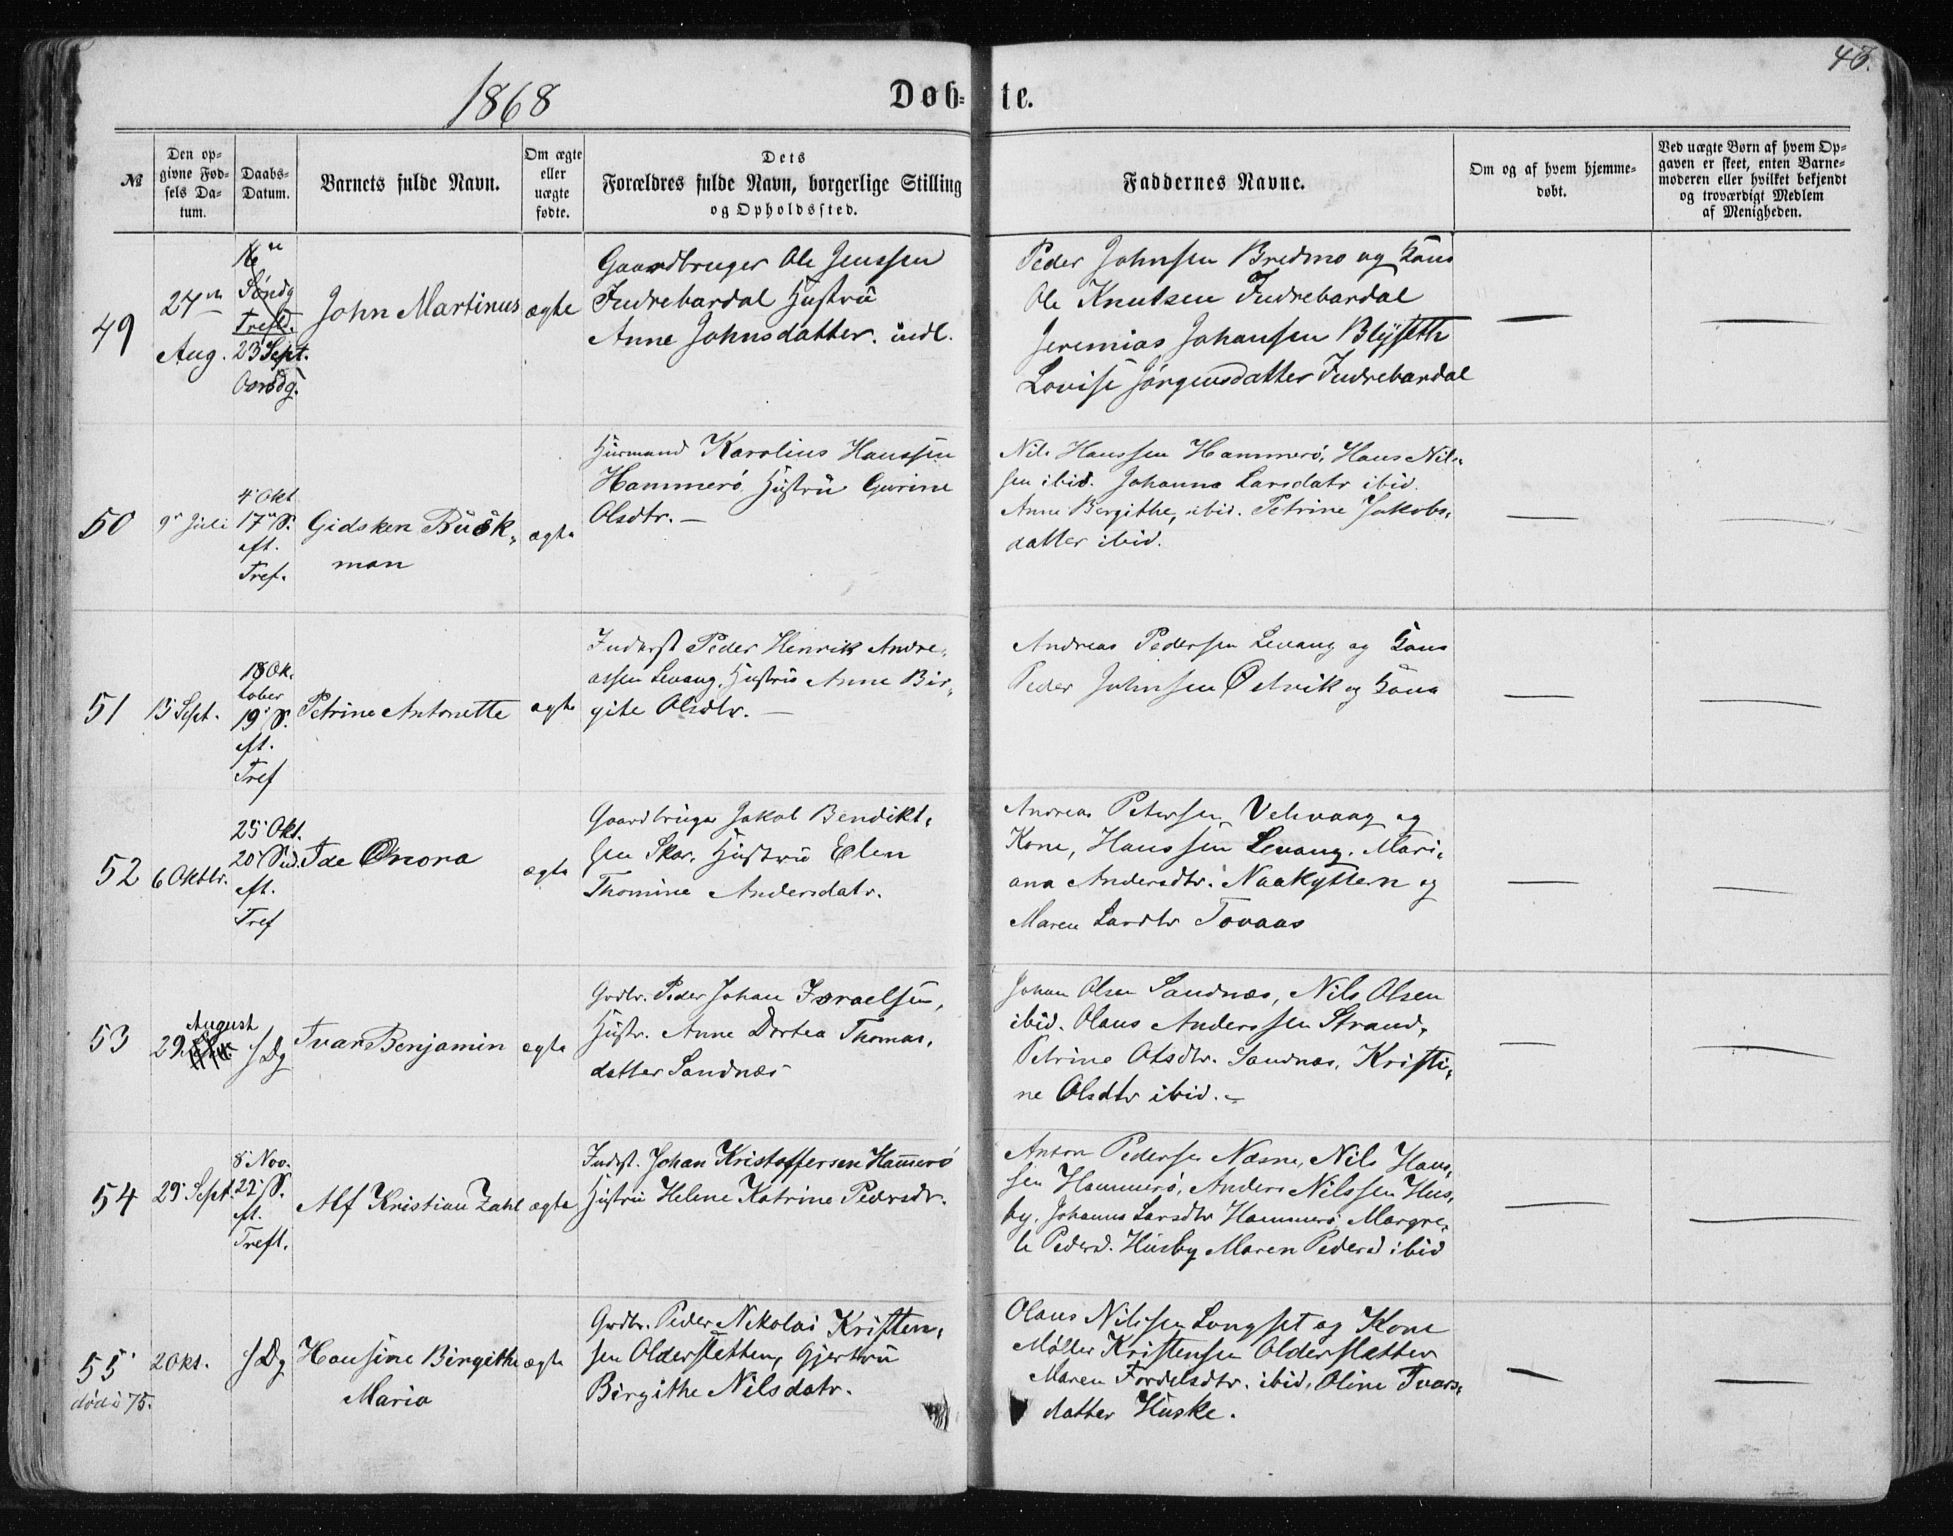 48.
1868
Døb-
te.
№
Den op-
givne Fød-
sels Da-
tum.
Daabs-
Datum.
Barnets fulde Navn.
Om ægte
eller
uægte
fødte.
Dets
Forældres fulde Navn, borgerlige Stilling
og Opholdssted.
Faddernes Navne.
Om og af hvem hjemme-
døbt.
Ved uægte Børn af hvem Op-
gaven er skeet, enten Barne-
moderen eller hvilket bekjendt
og troværdigt Medlem
af Menigheden.
49
27
Aug.
Søndg
Trefd.
23 Sept.
Onsdg.
John Martinus
ægte
Gaardbruger Ole Jenssen
Indrebardal Hustru
Anne Johnsdatter. indl.
Peder Johnsen Bredmo og Kone
Ole Knutsen Indrebardal
Jeremias Johansen Blyseth
Lovise Jørgensdatter Indrebardal
50
9 Juli
4 Okt
17 S.
eft.
Tref.
Gidsken Buck-
man
ægte
Huusmand Karolius Hanssen
Hammerø, Hustru Gurine
Olsdtr. —
Nils Hanssen Hammerø, Hans Nils-
sen ibid. Johanna Larsdatr ibid.
Anne Bergithe, ibid. Petrine Jakobs-
datter ibid.
51
15 Sept.
18 Ok-
tober
19 S.
eft.
Tref
Petrine Antonette
ægte
Inderst Peder Henrik Andre-
assen Levang, Hustru Anne Bir-
gite Olsdtr. —
Andreas Pedersen Levang og Kone
Peder Johnsen Østvik og Kone
52
6 Oktbr.
25 Okt.
20 Sd.
eft.
Tref
Ide Onora
ægte
Gaardbruger Jakob Bendikt-
sen Skar, Hustru Elen
Thomine Andersdatr.
Andreas Petersen, Velvaag og
Kone, Hanssen Levang. Mari-
ana Andersdtr. Naakyttern og
Maren Larsdtr Tovaas
53
August
29
/ Dg
Ivar Benjamin
ægte
Grdbr. Peder Johan Israelsen,
Hustr. Anne Dortea Thomas-
datter Sandnæs
Johan Olsen Sandnæs, Nils Olsen
ibid. Olaus Anderssen Strand,
Petrine Olsdtr. Sandnæs, Kristi-
ne Olsdtr ibid. —
54
29 Sept.
8 Nov.
22 S.
eft.
Treft.
Alf Kristian Zahl
ægte
Inderst. Johan Kristoffersen Hammerø
Hustru Helene Katrine Pedersdr.
Anton Pedersen Næsne, Nils Hans-
sen Hammerø, Anders Nilssen Hus-
by. Johanna Larsdtr Hammerø, Margre-
te Pedersd. Husby Maren Pedersd ibid
55
død i 75.
2 Okt.
/ Dg
Hansine Birgithe
Maria
ægte
Grdbr. Peder Nikolai Kristen-
sen Oldersletten, Gjertru
Birgithe Nilsdatr.
Olaus Nilssen Langset og Kone
Møller Kristensen Oldersletten
Maren Fordelsdtr. ibid, Oline Ivars-
datter Huske.